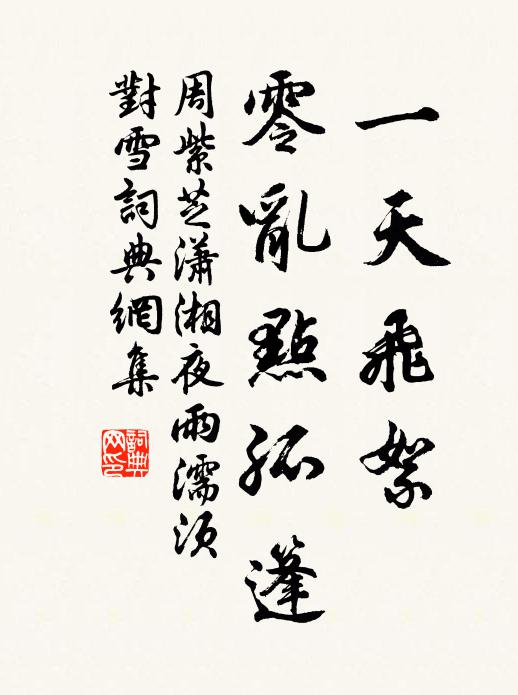 一天飛絮
零亂點孤篷
周紫芝瀟湘夜雨濡須
對雪詞典網集
詞典
网印